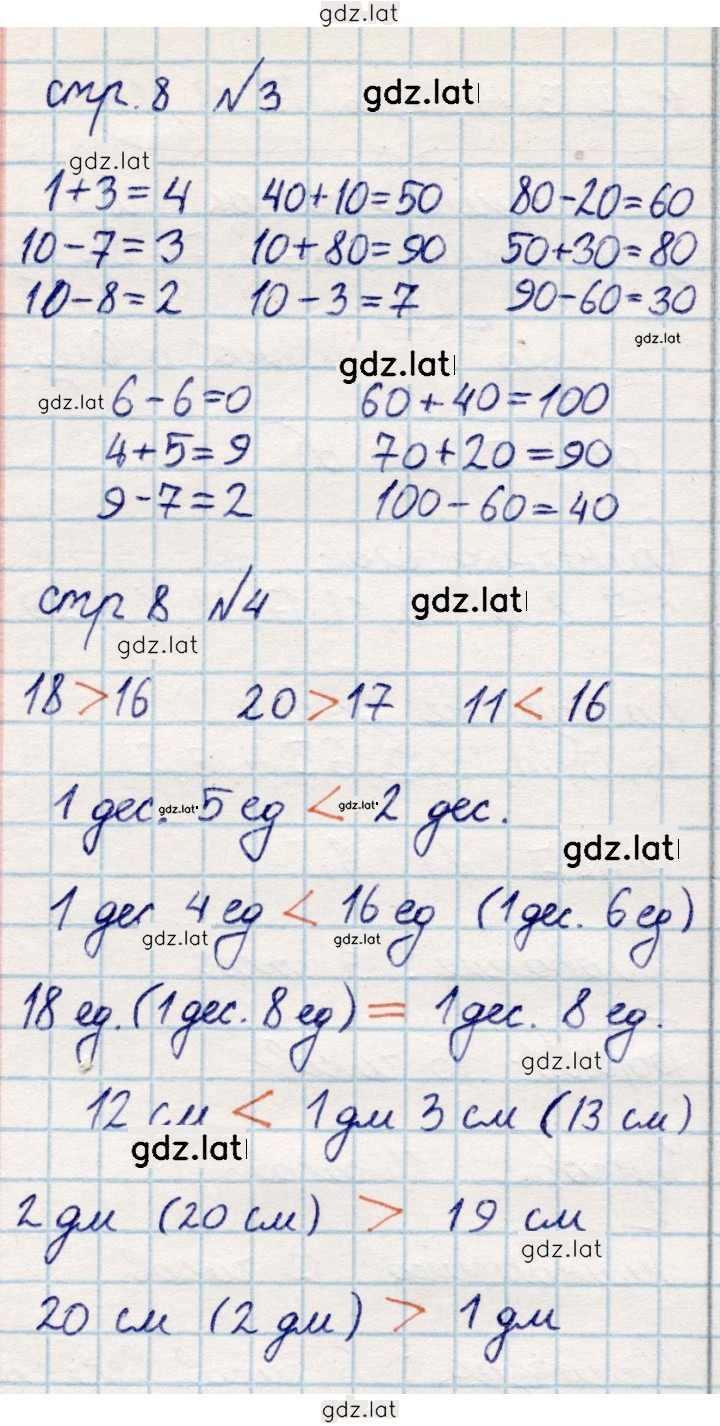 gdz.lat
стр. 8 №3 gdz.lat
gdz.lat
1+3=4 40+10=50 80-20=60
10-7=3 10+80=90 50+30=80
10-8=2 10-3=7 90-60=30
gdz.lat
gdz.lat
gdz.lat 6-6=0 60+40=100
4+5=9 70+20=90
9-7=2 100-60=40
стр 8 №4 gdz.lat
gdz.lat
18>16 20>17 11<16
1 дес. gdz.lat 5 ед < gdz.lat 2 дес.
gdz.lat
1 дес 4 ед < 16 ед (1 дес. 6 ед)
gdz.lat gdz.lat
18 ед. (1 дес. 8 ед) = 1 дес. 8 ед.
gdz.lat
12 см < 1 дм 3 см (13 см)
gdz.lat
2 дм (20 см) > 19 см
gdz.lat
20 см (2 дм) > 1 дм
gdz.lat